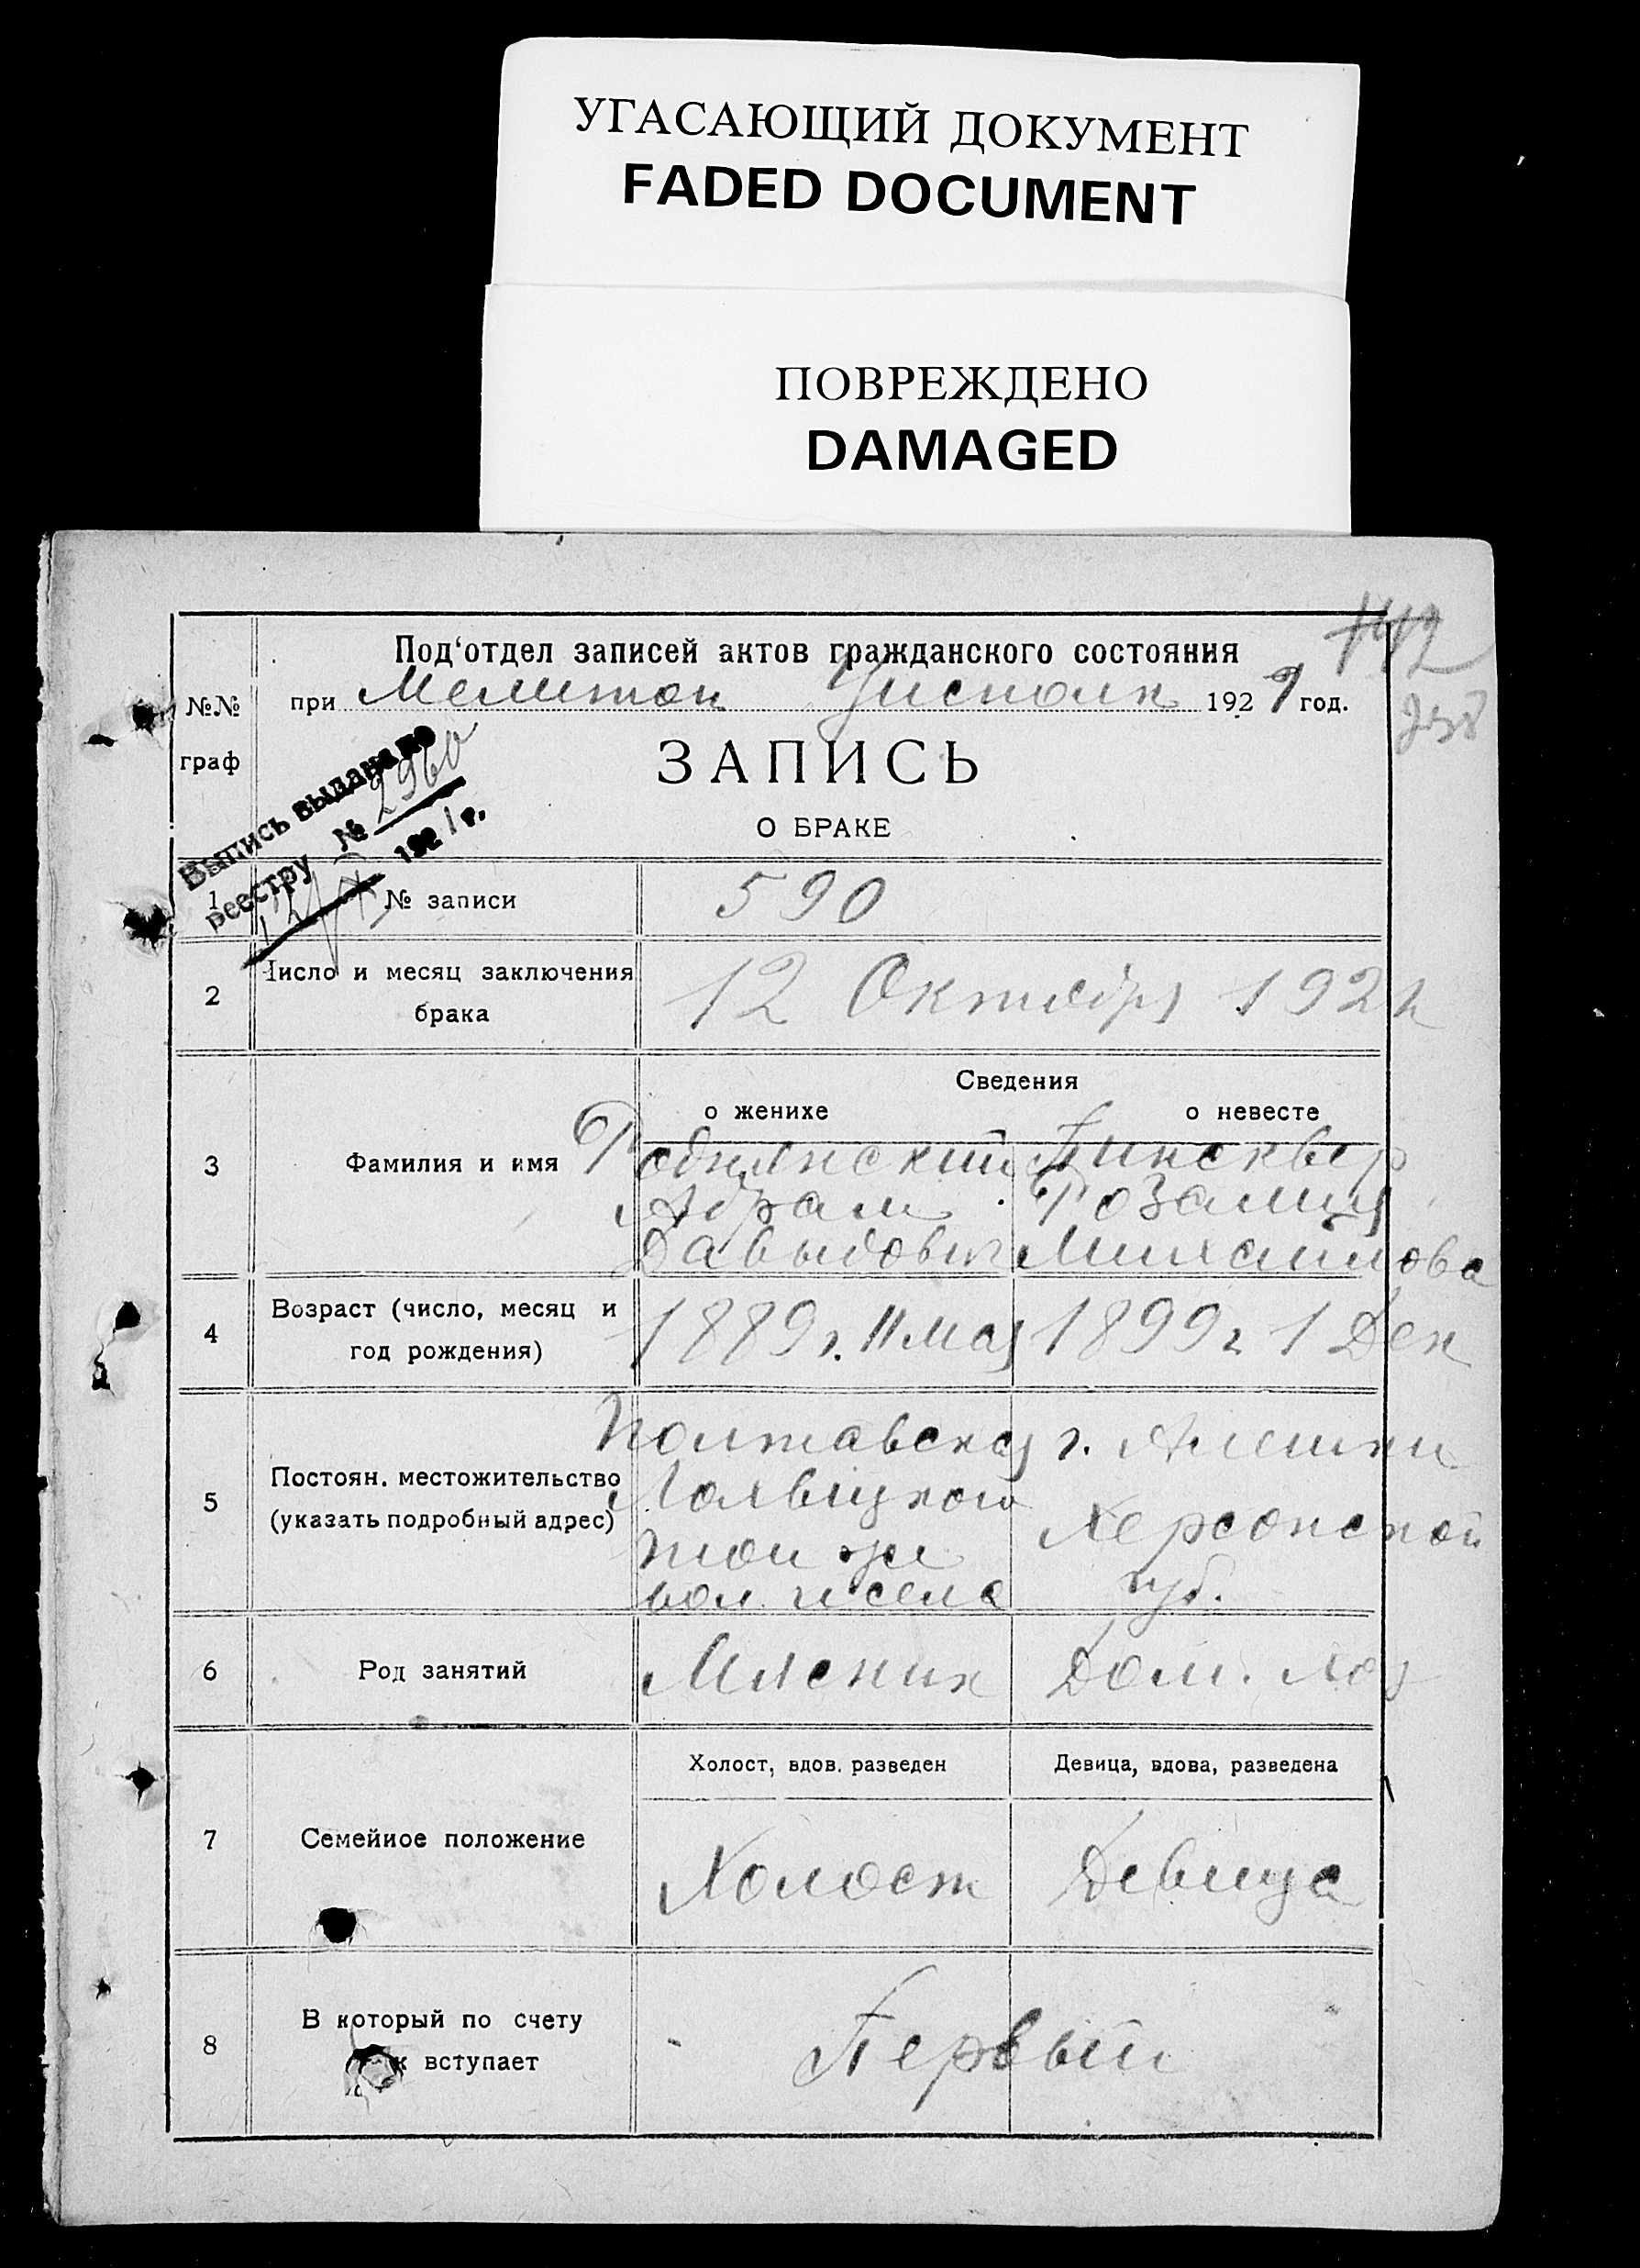 УГАСАЮЩИЙ ДОКУМЕНТ
FADED DOCUMENT
ПОВРЕЖДЕНО
DAMAGED
142
238
Под‘отдел записей актов гражданского состояния
№№
граф
при Мелитоп Уисполк 1921 год.
Выпись выдана по
реестру № 2960
12/X 1921 г.
ЗАПИСЬ
О БРАКЕ
1 № записи 590
2 Число и месяц заключения брака 12 Октября 1921
Сведения
о женихе о невесте
3 Фамилия и имя
Роднянский Пинсквер
Абрам Розалия
Давыдович Михайлова
4 Возраст (число, месяц и
год рождения)
1889 г. 11 мая 1899 г 1 Дек
5 Постоян. местожительство
(указать подробный адрес)
Полтавская г. Алешки
Херсонской
той же
вол и села губ.
6 Род занятий Мясник Дом. хоз
7 Семейное положение
Холост, вдов. разведен Девица, вдова, разведена
Холост Девица
8 В который по счету
вступает
Первый